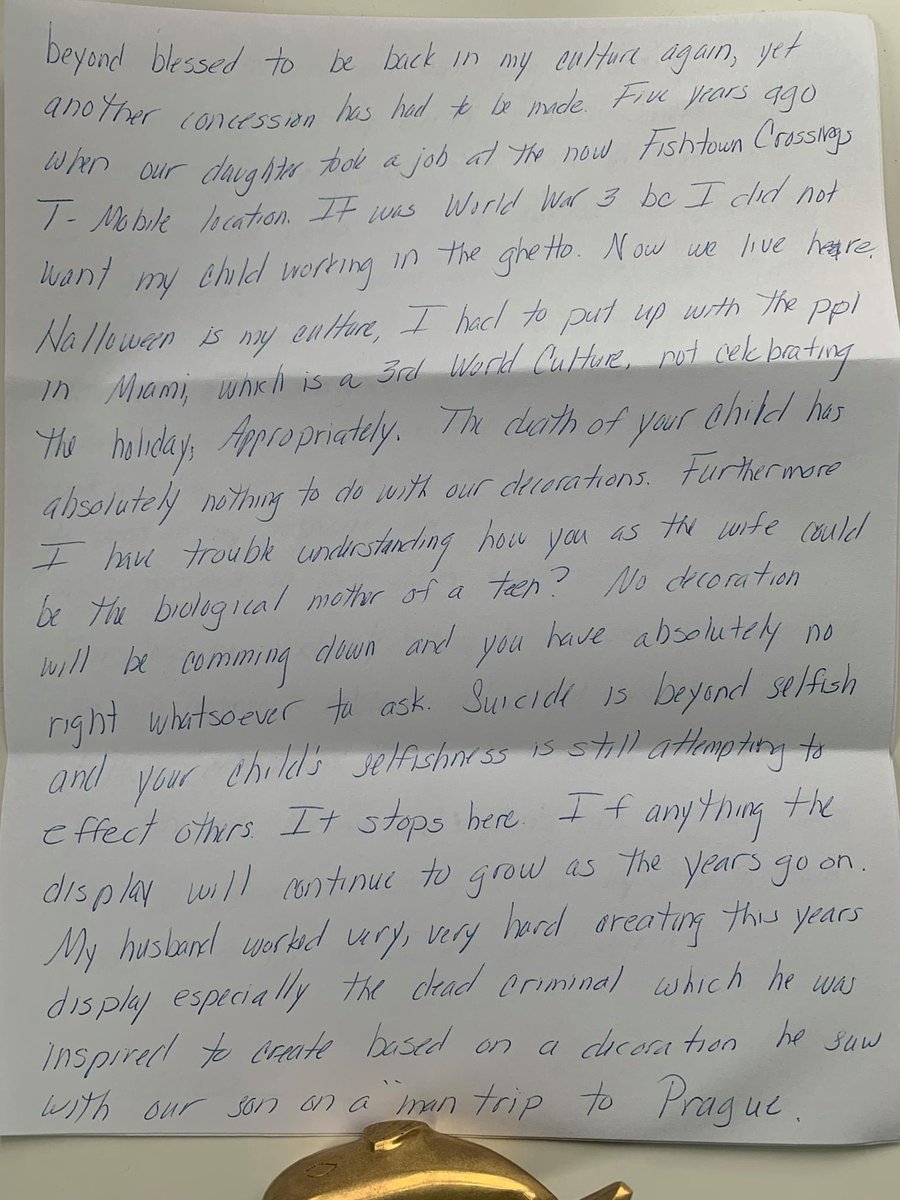 beyond blessed to be back in my culture again, yet
another concession has had to be made. Five years ago
when our daughter took a job at the now Fishtown Crossings
T-Mobile location. It was World War 3 bc I did not
want my child working in the ghetto. Now we live here.
Halloween is my culture, I had to put up with the ppl
in Miami, which is a 3rd World Culture, not celebrating
the holiday, Appropriately. The death of your child has
absolutely nothing to do with our decorations. Furthermore
I have trouble understanding how you as the wife could
be the biological mother of a teen? No decoration
will be comming down and you have absolutely no
right whatsoever to ask. Suicide is beyond selfish
and your child's selfishness is still attempting to
effect others. It stops here. If anything the
display will continue to grow as the years go on.
My husband worked very, very hard creating this years
display especially the dead criminal which he was
inspired to create based on a decoration he saw
with our son on a "man trip to Prague.